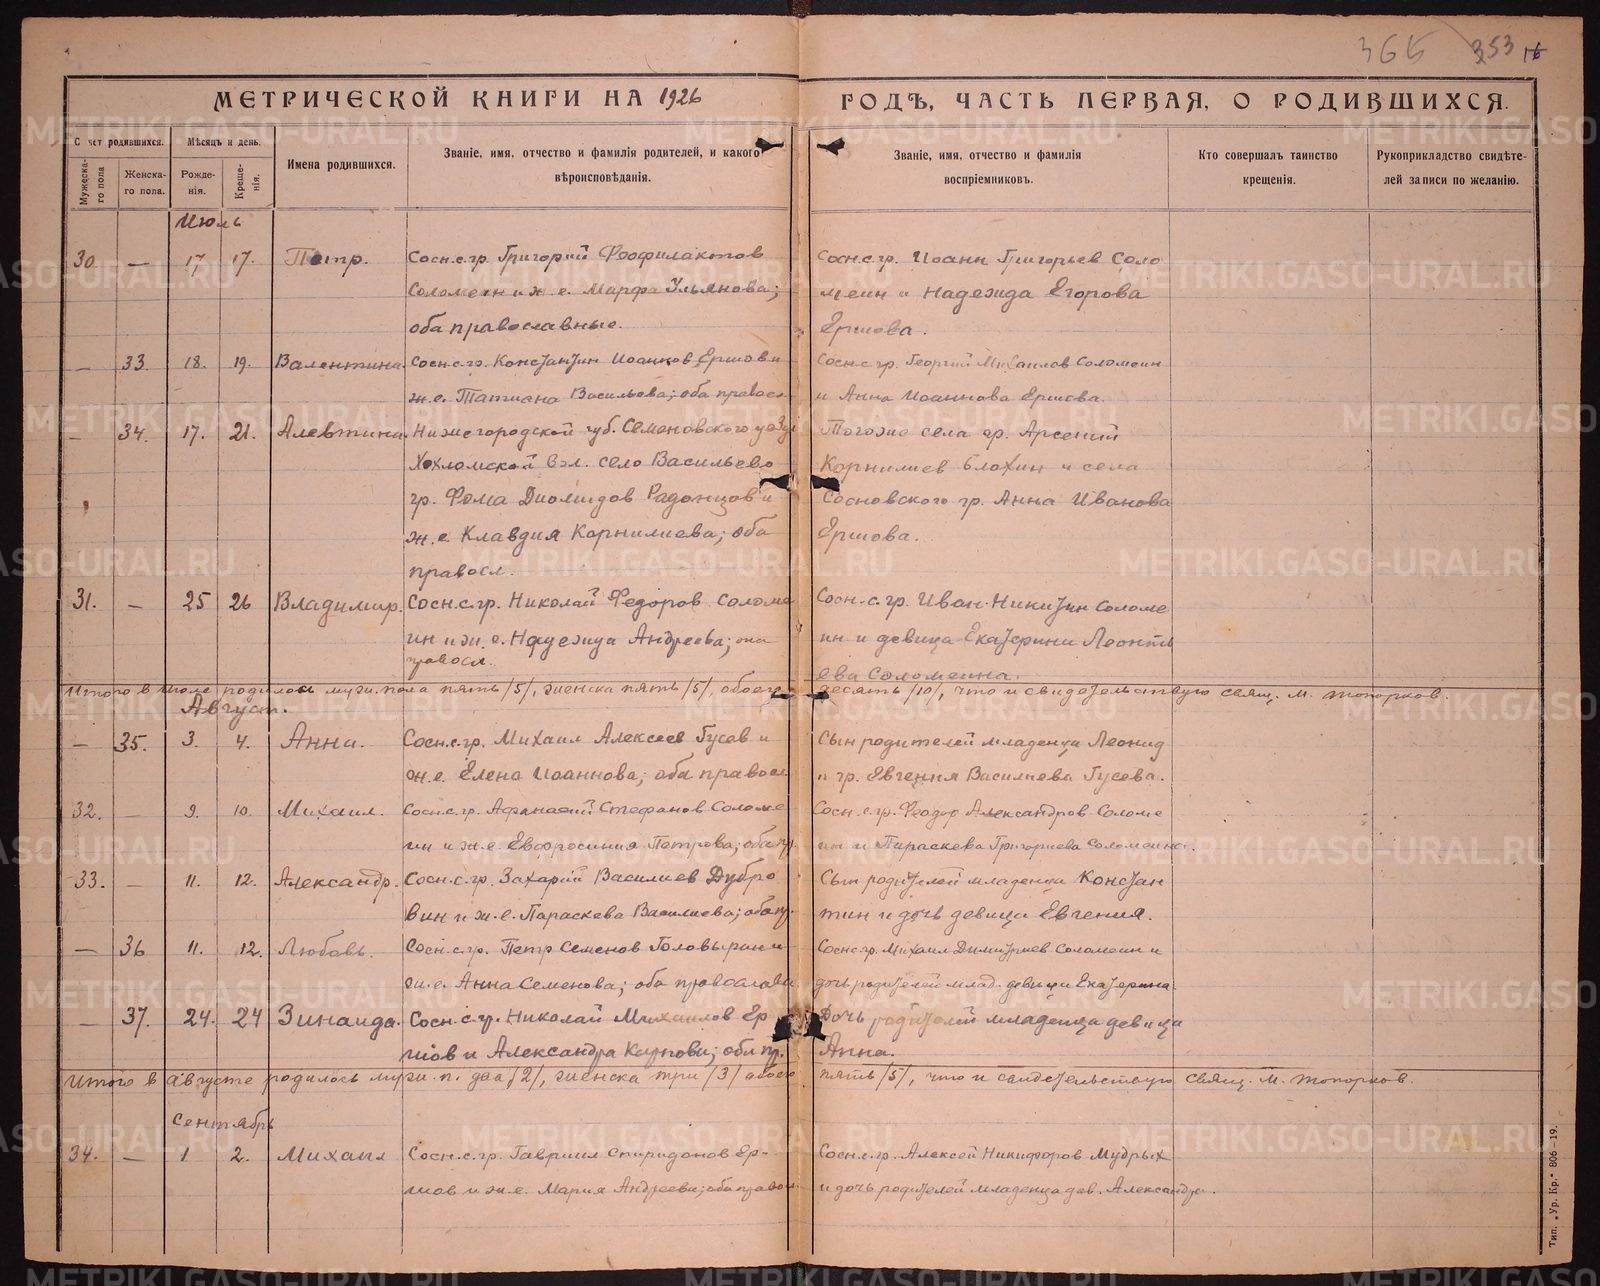 366 353 16
МЕТРИЧЕСКОЙ КНИГИ НА 1926 ГОДЪ, ЧАСТЬ ПЕРВАЯ, О РОДИВШИХСЯ.
Счет родившихся.
Мѣсяцъ и день.
Мужеска-го пола
Женска-го пола.
Рожде-нія.
Креще-нія.
Имена родившихся.
Званіе, имя, отчество и фамилія родителей, и какого
вѣроисповѣданія.
Званіе, имя, отчество и фамилія
воспріемниковъ.
Кто совершалъ таинство
крещенія.
Рукоприкладство свидѣте-
лей записи по желанію.
Июль
30. — 17 17. Петр.
Сосн.с.гр. Григорий Феофилактов
Соломеин и ж. е. Марфа Ульянова;
оба православные.
Сосн.с.гр. Иоанн Григорьев Соло
меин и Надежда Егорова
Ершова.
— 33. 18. 19. Валентина.
Сосн.с.гр. Константин Иоаннов Ершов и
ж.е. Татиана Васильева; оба правосл.
Сосн.с.гр. Георгий Михаилов Соломеин
и Анна Иоаннова Ершова.
— 34. 17. 21. Алевтина.
Нижегородской губ. Семеновского уезда
Хохломской вол. село Васильево
гр. Фома Диомидов Радонцов и
ж.е. Клавдия Корнилиева; оба
правосл.
Тогоже села гр. Арсений
Корнилиев Блохин и села
Сосновского гр. Анна Иванова
Ершова.
31. — 25 26 Владимир.
Сосн.с.гр. Николай Федоров Соломе
ин и ж. е. Надежда Андреева; оба
правосл.
Сосн.с.гр. Иван Никитин Соломе
ин и девица Екатерина Леонть
ева Соломеина.
Итого в июле родилось муж. пола пять /5/, женска пять /5/, обоего десять /10/, что и свидетельствую свящ. М. Топорков.
Август.
— 35. 3. 4. Анна.
Сосн.с.гр. Михаил Алексеев Гусев и
ж.е. Елена Иоаннова; оба правосл.
Сын родителей младенца Леонид
и гр. Евгения Василиева Гусева.
32. — 9. 10. Михаил.
Сосн.с.гр. Афанасий Стефанов Соломе
ин и ж.е. Евфросиния Петрова; оба пр.
Сосн.с.гр. Феодор Александров Соломе
ин и Параскева Григориева Соломеина.
33. — 11. 12. Александр.
Сосн.с.гр. Захарий Василиев Дубро
вин и ж.е. Параскева Василиева; оба пр.
Сын родителей младенца Констан
тин и дочь девица Евгения.
— 36 11. 12. Любовь.
Сосн.с.гр. Петр Семенов Головырин и
ж.е. Анна Семенова; оба православн.
Сосн.с.гр. Михаил Димитриев Соломеин и
дочь родителей млад. девица Екатерина.
— 37. 24. 24 Зинаида.
Сосн.с.гр. Николай Михаилов Ер
шов и Александра Карпова; оба пр.
Дочь родителей младенца девица
Анна.
Итого в августе родилось муж. п. два /2/, женска три /3/ обоего пять /5/, что и свидетельствую свящ. М. Топорков.
Сентябрь
34. — 1 2. Михаил
Сосн.с.гр. Гавриил Спиридонов Ер-
шов и ж.е. Мария Андреева; оба правосл.
Сосн.с.гр. Алексей Никифоров Мудрых
и дочь родителей младенца дев. Александра.
Тип. „Ур. Кр.“ 806—19.
METRIKI.GASO-URAL.RU